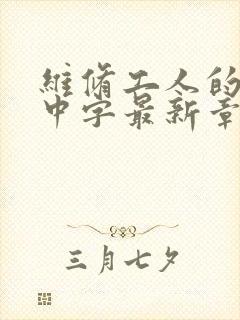 維脩工人的
中字最新章
三月七夕